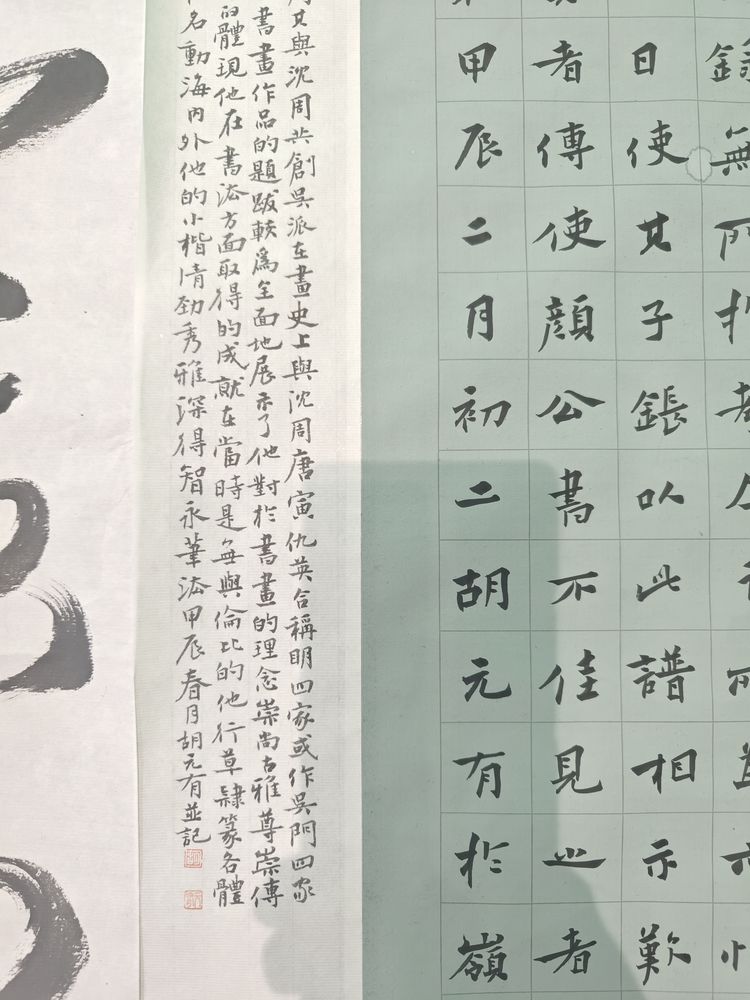 無
日使其子鋹以此譜相示歎
者傳使顏公書不佳見之者
甲辰二月初二胡元有於嶺
其與沈周共創吳派在畫史上與沈周唐寅仇英合稱明四家或作吳門四家
書畫作品的題跋較為全面地展示了他對於書畫的理念崇尚古雅尊崇傳
的體現他在書法方面取得的成就在當時是無與倫比的他行草隸篆各體
名動海內外他的小楷清勁秀雅深得智永筆法甲辰春月胡元有並記